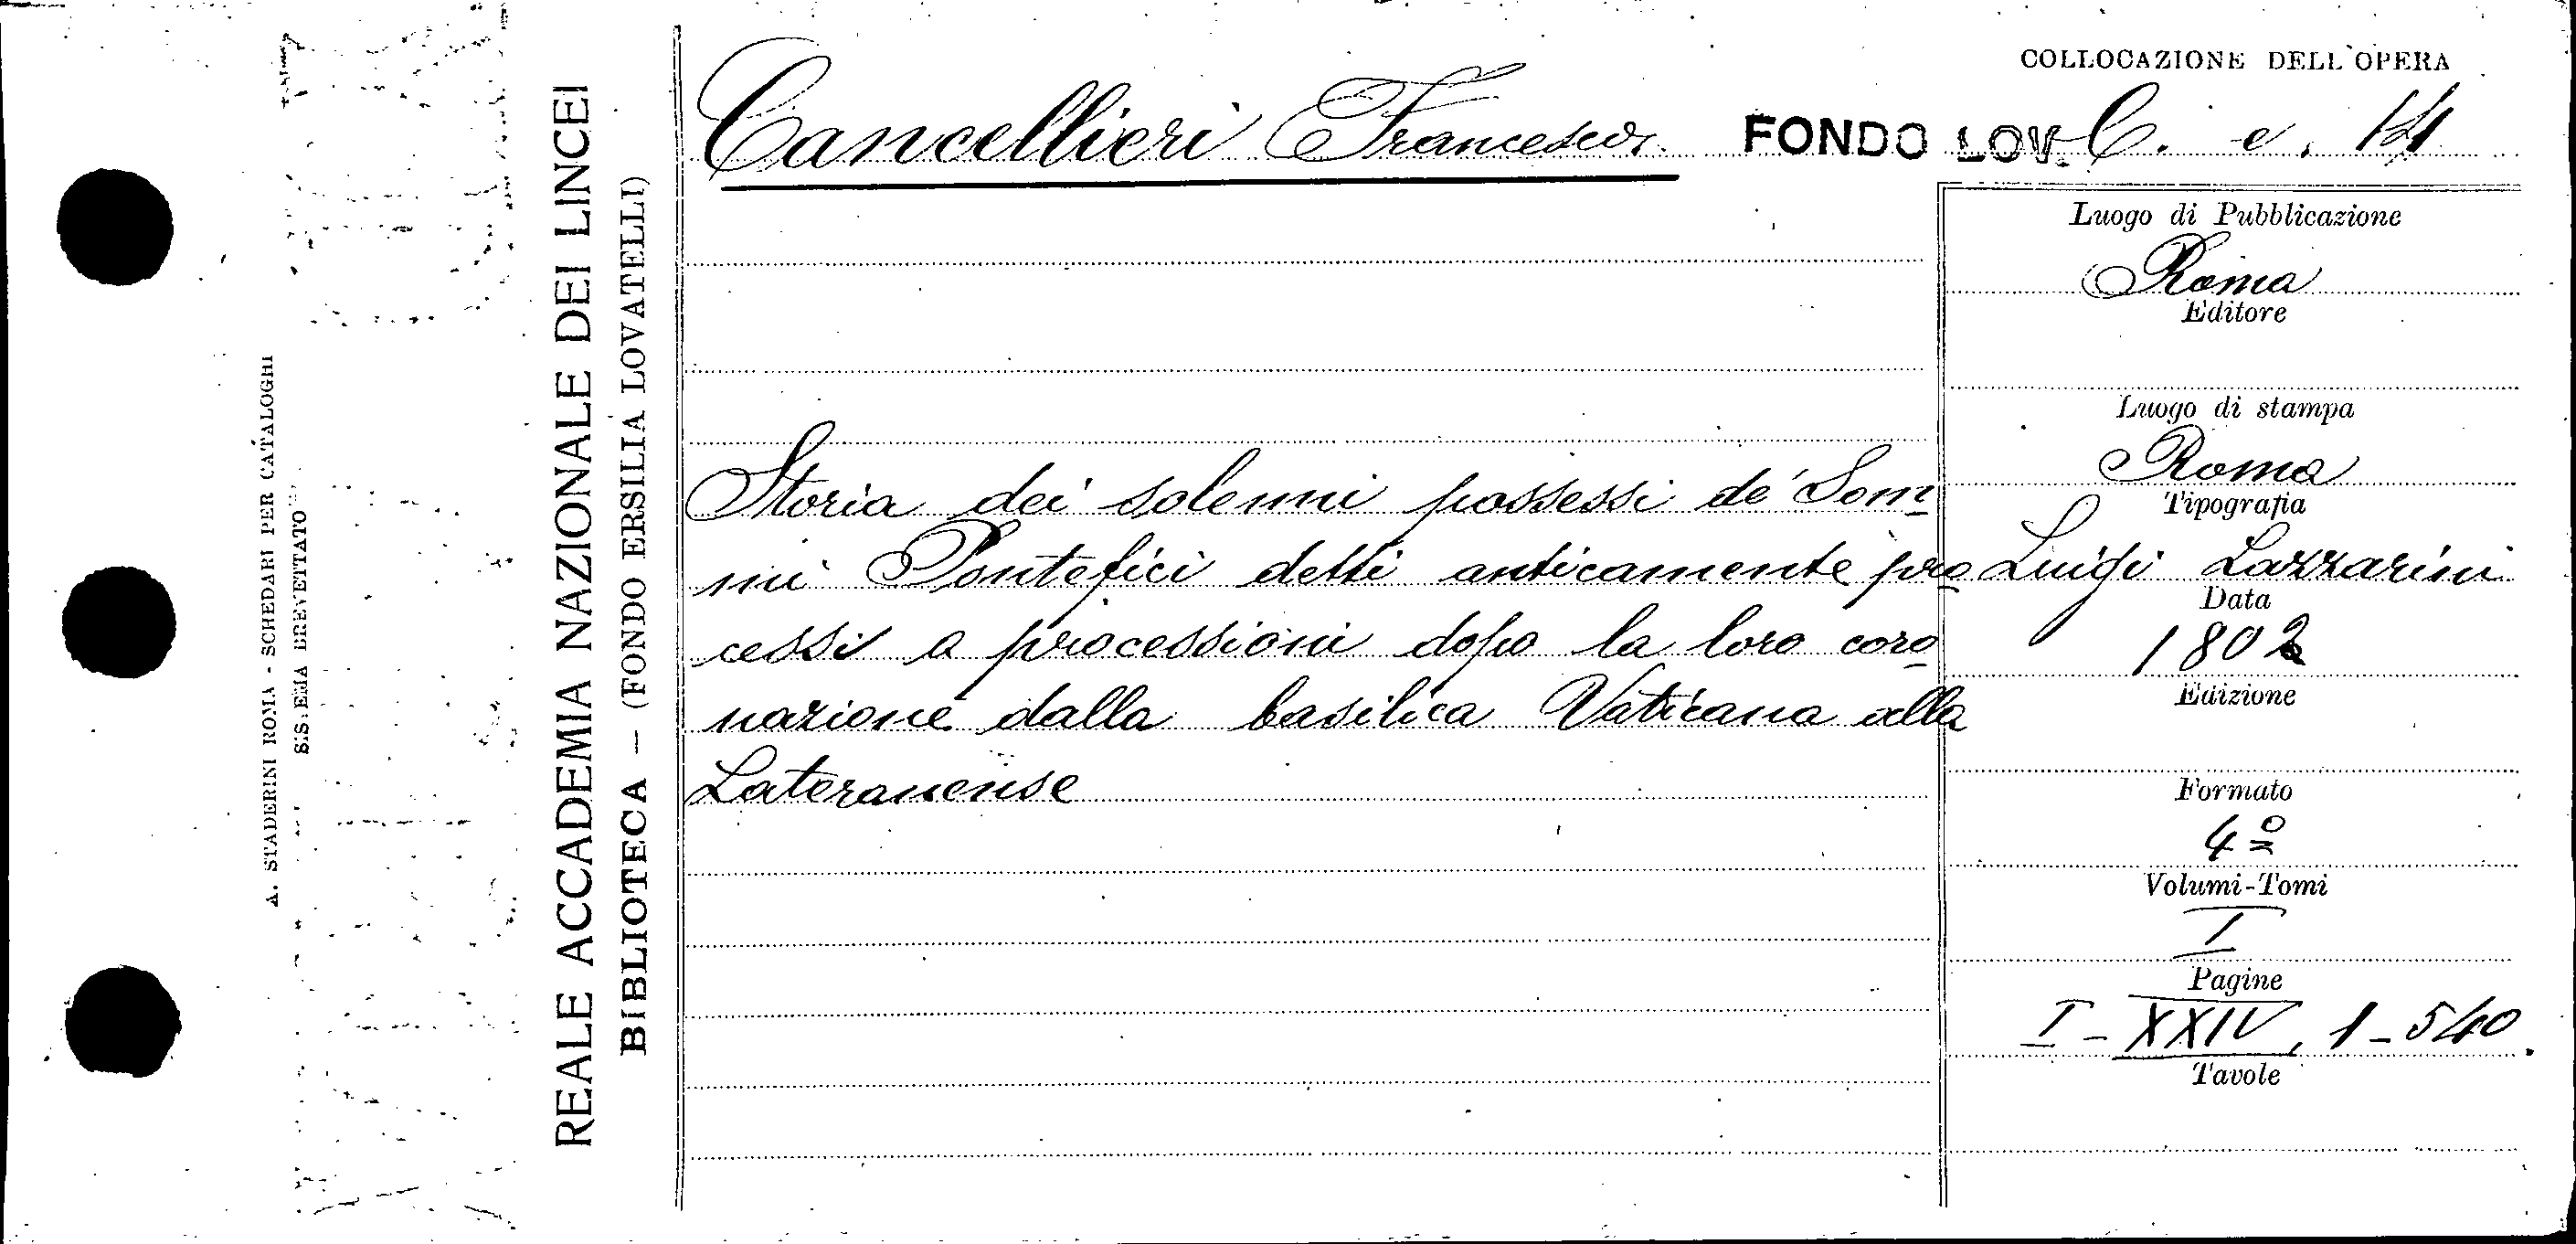 A. STADERINI ROMA - SCHEDARI PER CATALOGHI
SISTEMA BREVETTATO
REALE ACCADEMIA NAZIONALE DEI LINCEI
BIBLIOTECA – (FONDO ERSILIA LOVATELLI)
COLLOCAZIONE DELL'OPERA
Cancellieri Francesco. FONDO LOV. C. e. 14
Storia dei solenni possessi de' Som-
mi Pontefici detti anticamente pro-
cessi o processioni dopo la loro coro-
nazione dalla basilica Vaticana alla
Lateranense
Luogo di Pubblicazione
Roma
Editore
Luogo di stampa
Roma
Tipografia
Luigi Lazzarini
Data
1802
Edizione
Formato
4º
Volumi-Tomi
I
Pagine
I - XXIV, 1 - 540.
Tavole